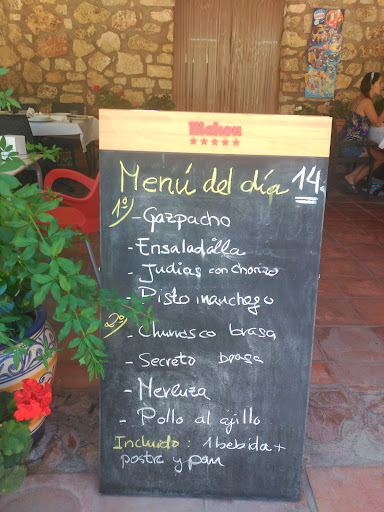 Mahou
Menú del día 14
1º) - Gazpacho
- Ensaladilla
- Judias con chorizo
- Pisto manchego
2º) - Churrasco brasa
- Secreto brasa
- Merluza
- Pollo al ajillo
Incluido: 1 bebida +
postre y pan